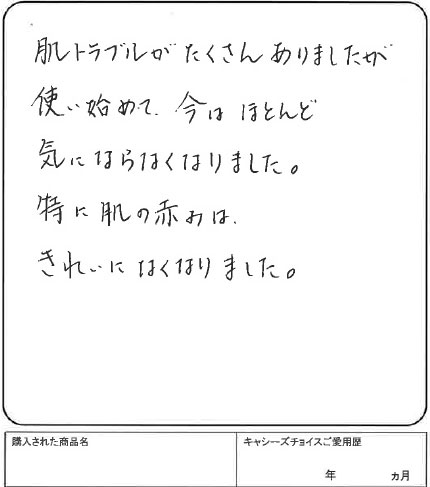 肌トラブルが たくさん ありましたが
使い始めて、今は ほとんど
気にならなくなりました。
特に肌の赤みは、
きれいになくなりました。
購入された商品名
キャシーズチョイスご愛用歴
年 ヵ月